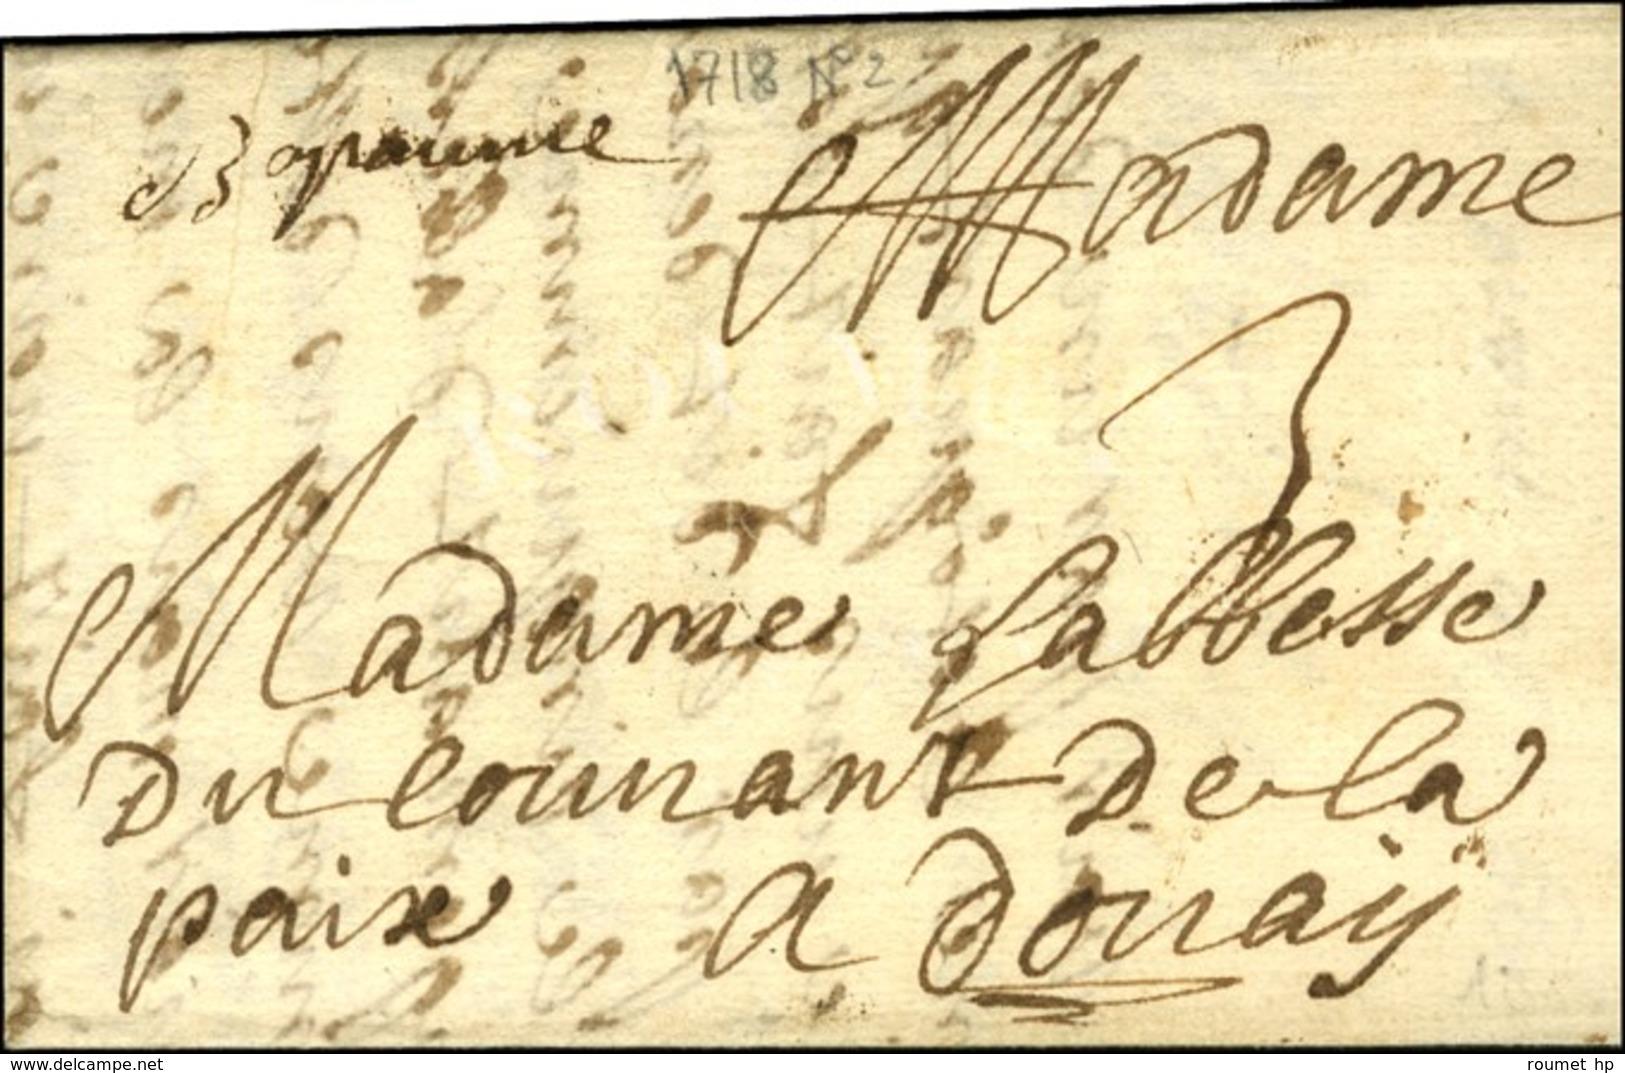 1718 N° 2
Bapaume
Madame
3
Madame Labbesse
Du Couuant de la
paix a doüaÿ
www.delcampe.net
roumet hp